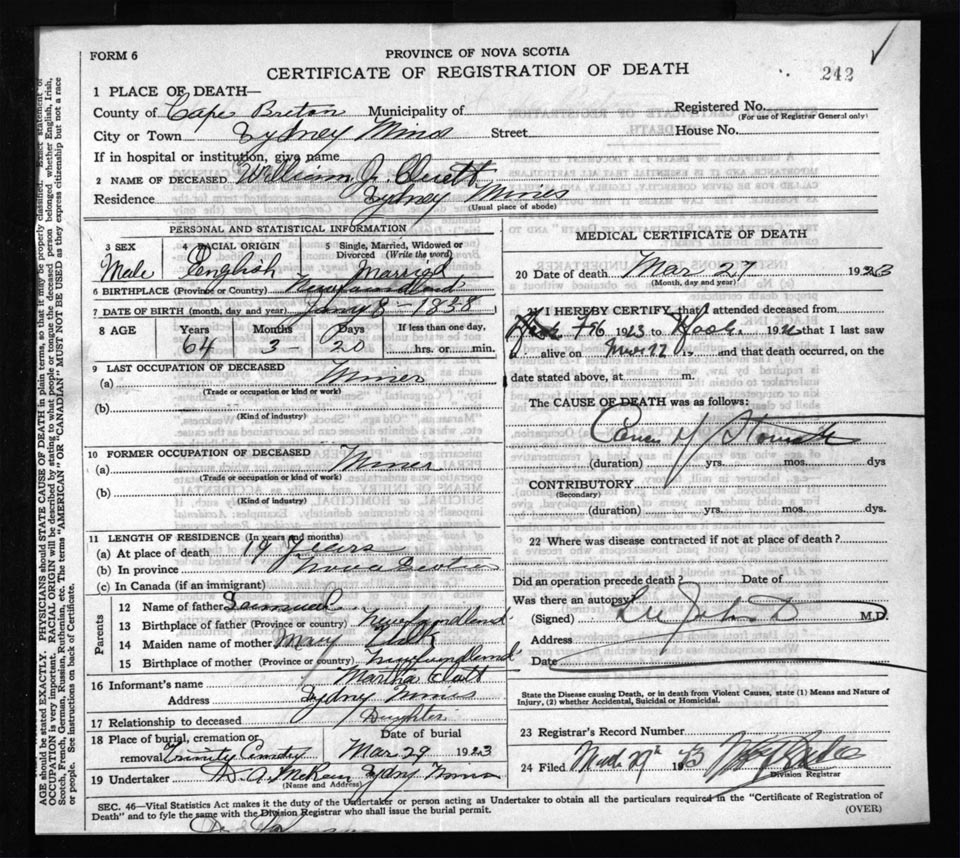 FORM 6
PROVINCE OF NOVA SCOTIA
CERTIFICATE OF REGISTRATION OF DEATH
242
1 PLACE OF DEATH—
County of Cape Breton Municipality of
Registered No.
(For use of Registrar General only)
City or Town Sydney Mines Street House No.
If in hospital or institution, give name
2 NAME OF DECEASED William J.
Residence Sydney Mines
(Usual place of abode)
PERSONAL AND STATISTICAL INFORMATION
3 SEX
Male
4 RACIAL ORIGIN
English
5 Single, Married, Widowed or Divorced (Write the word)
Married
6 BIRTHPLACE (Province or Country) Newfoundland
7 DATE OF BIRTH (month, day and year) Jany 8 - 1858
8 AGE
Years Months Days If less than one day,
64 3 - 20 hrs. or min.
9 LAST OCCUPATION OF DECEASED
(a) Miner
(Trade or occupation or kind or work)
(b)
(Kind of industry)
10 FORMER OCCUPATION OF DECEASED
(a) Miner
(Trade or occupation or kind or work)
(b)
(Kind of industry)
11 LENGTH OF RESIDENCE (In years and months)
(a) At place of death 19 Years
(b) In province Nova Scotia
(c) In Canada (if an immigrant)
Parents
12 Name of father Samuel
13 Birthplace of father (Province or country) Newfoundland
14 Maiden name of mother Mary
15 Birthplace of mother (Province or country) Newfoundland
16 Informant's name Martha
Address Sydney Mines
17 Relationship to deceased Daughter
18 Place of burial, cremation or removal Trinity Cemetry
Date of burial
Mar 29 1923
19 Undertaker D. A. Sydney Mines
(Name and Address)
MEDICAL CERTIFICATE OF DEATH
20 Date of death Mar 27 1923
(Month, day and year)
21 I HEREBY CERTIFY, that I attended deceased from
1923 to 192 that I last saw
alive on and that death occurred, on the
date stated above, at m.
The CAUSE OF DEATH was as follows:
Cancer of Stomach
(duration) yrs. mos. dys
CONTRIBUTORY
(Secondary)
(duration) yrs. mos. dys.
22 Where was disease contracted if not at place of death?
Did an operation precede death? Date of
Was there an autopsy?
(Signed) M.D.
Address
Date
State the Disease causing Death, or in death from Violent Causes, state (1) Means and Nature of
Injury, (2) whether Accidental, Suicidal or Homicidal.
23 Registrar's Record Number
24 Filed
Division Registrar
SEC. 46—Vital Statistics Act makes it the duty of the Undertaker or person acting as Undertaker to obtain all the particulars required in the "Certificate of Registration of
Death" and to fyle the same with the Division Registrar who shall issue the burial permit.
(OVER)
AGE should be stated EXACTLY. PHYSICIANS should STATE CAUSE OF DEATH in plain terms, so that it may be properly classified. Exact statement of
OCCUPATION is very important. RACIAL ORIGIN will be described by stating to what people or tongue the deceased person belonged whether English, Irish,
Scotch, French, German, Russian, Ruthenian, etc. The terms "AMERICAN" OR "CANADIAN" MUST NOT BE USED as they express citizenship but not a race
or people. See instructions on back of Certificate.